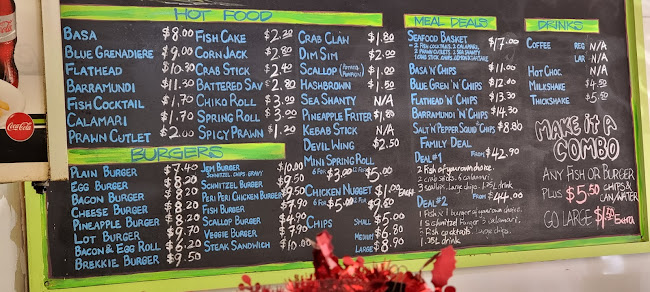 HOT FOOD
BASA $8.00
BLUE GRENADIERE $9.00
FLATHEAD $10.30
BARRAMUNDI $11.30
FISH COCKTAIL $1.70
CALAMARI $1.70
PRAWN CUTLET $2.00
FISH CAKE $2.30
CORN JACK $2.80
CRAB STICK $2.40
BATTERED SAV 2.80
CHIKO ROLL $3.00
SPRING ROLL $3.00
SPICY PRAWN $1.20
CRAB CLAW $1.80
DIM SIM $2.00
SCALLOP $1.00
HASHBROWN $1.50
SEA SHANTY N/A
PINEAPPLE FRITER $1.80
KEBAB STICK N/A
DEVIL WING $2.50
MINI SPRING ROLL
6 FOR $3.00 12 FOR $5.00
CHICKEN NUGGET $1.00 EACH
6 FOR $5.00 12 FOR $9.60
CHIPS SMALL $5.00
MEDIUM $6.90
LARGE $8.90
BURGERS
PLAIN BURGER $7.40
EGG BURGER $8.20
BACON BURGER $9.20
CHEESE BURGER $8.20
PINEAPPLE BURGER $8.20
LOT BURGER $9.70
BACON & EGG ROLL $6.20
BREKKIE BURGER $9.50
JEM BURGER $10.00
SCHNITZEL CHIPS GRAVY
SCHNITZEL BURGER $9.50
PERI PERI CHICKEN BURGER $9.50
FISH BURGER $7.90
SCALLOP BURGER $4.90
VEGGIE BURGER $7.90
STEAK SANDWICH $10.00
MEAL DEALS
SEAFOOD BASKET $17.00
BASA 'N' CHIPS $11.00
BLUE GREN 'N' CHIPS $12.00
FLATHEAD 'N' CHIPS $13.30
BARRAMUNDI 'N' CHIPS $14.30
SALT N' PEPPER SQUID 'N' CHIPS $8.80
FAMILY DEAL
DEAL #1 FROM $42.90
2 Fish of your own choice.
2 crab sticks, 6 calamari,
3 scallops, large chips. 1.25L drink
DEAL #2 FROM $44.00
1 Fish & 1 burger of your own choice.
1 Schnitzel Burger, 3 calamari.
3 Fish cocktails. Large chips.
1.25L drink
DRINKS
COFFEE REG N/A
LAR N/A
HOT CHOC N/A
MILKSHAKE $4.50
THICKSHAKE $5.50
MAKE IT A
COMBO
ANY FISH OR BURGER
PLUS $5.50 CHIPS & CAN/WATER
GO LARGE $1.50 EXTRA
Coca-Cola